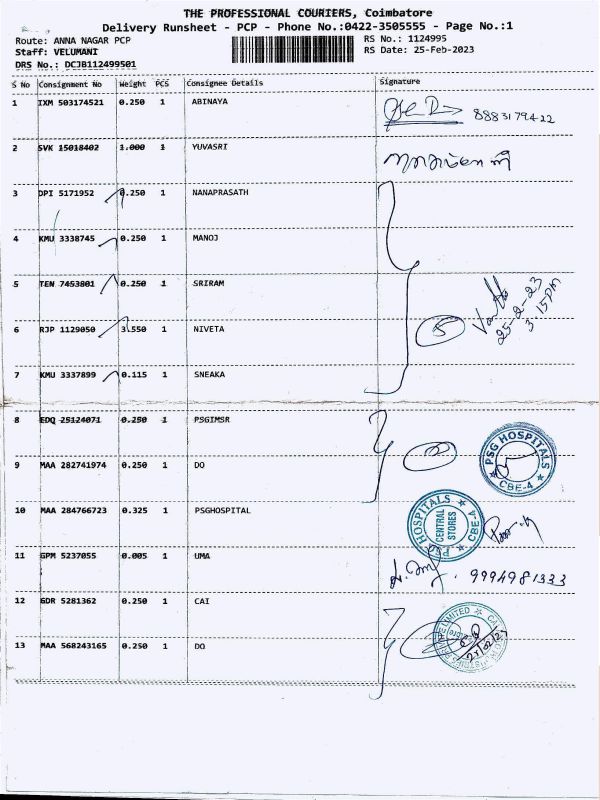 THE PROFESSIONAL COURIERS, Coimbatore
Delivery Runsheet - PCP - Phone No.:0422-3505555 - Page No.:1
Route: ANNA NAGAR PCP RS No.: 1124995
Staff: VELUMANI RS Date: 25-Feb-2023
DRS No.: DCJB112499501
S No Consignment No Weight PCS Consignee Details Signature
1 IXM 503174521 0.250 1 ABINAYA 8883179422
2 SVK 15018402 1.000 1 YUVASRI
3 DPI 5171952 0.250 1 NANAPRASATH
4 KMU 3338745 0.250 1 MANOJ
5 TEN 7453801 0.250 1 SRIRAM
25-2-23
3.15pm
6 RJP 1129050 3.550 1 NIVETA 5
7 KMU 3337899 0.115 1 SNEAKA
8 EDQ 25124071 0.250 1 PSGIMSR
9 MAA 282741974 0.250 1 DO
PSG HOSPITALS CBE-4
10 MAA 284766723 0.325 1 PSGHOSPITAL
PSG HOSPITALS CBE-4
CENTRAL
STORES
11 GPM 5237055 0.005 1 UMA 9994981333
12 GDR 5281362 0.250 1 CAI
13 MAA 568243165 0.250 1 DO